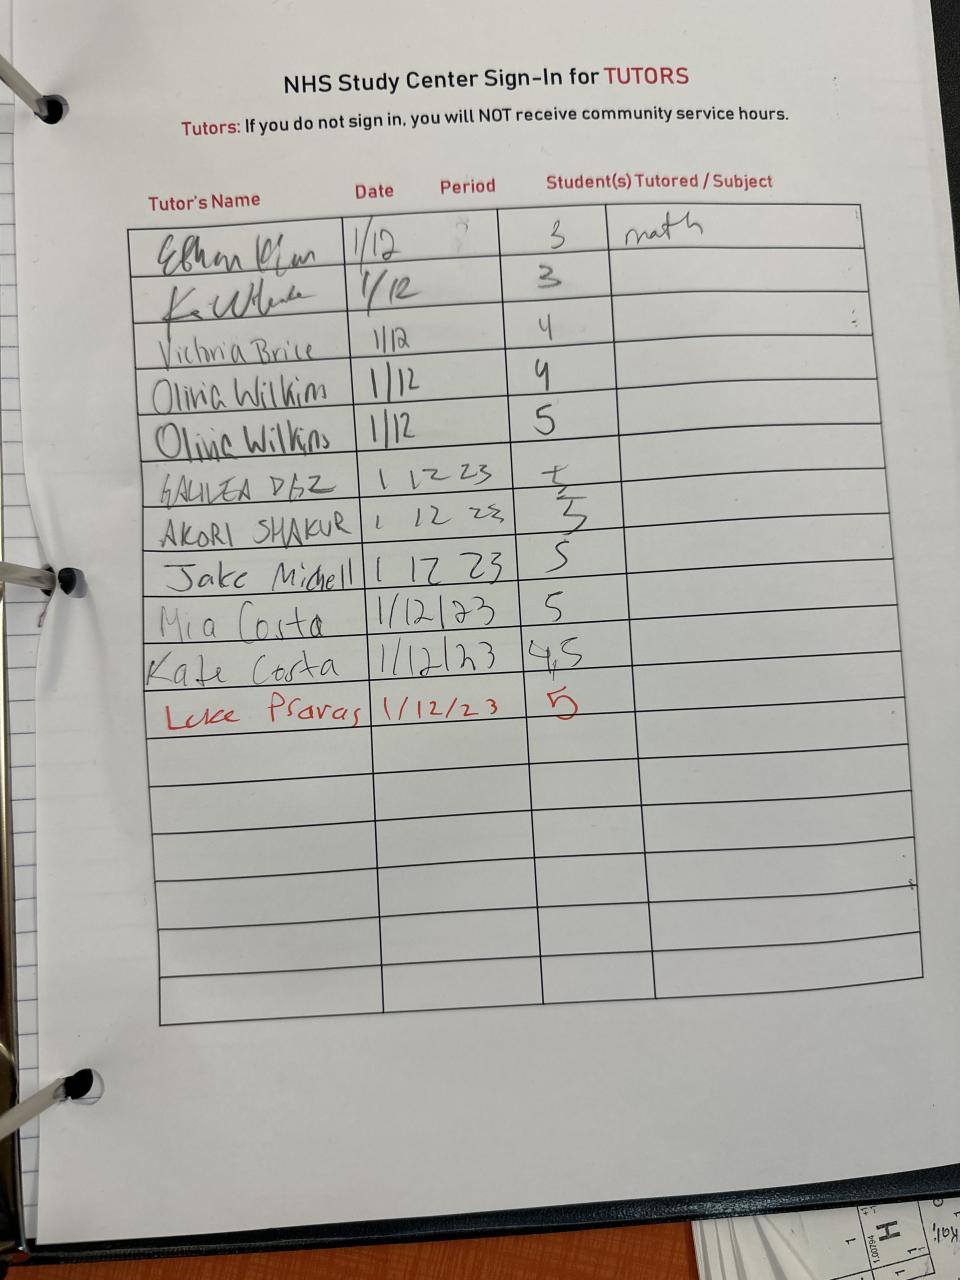 NHS Study Center Sign-In for TUTORS
Tutors: If you do not sign in, you will NOT receive community service hours.
Tutor's Name Date Period Student(s) Tutored / Subject
1/12 3 math
1/12 3
Victoria Brice 1/12 4
Olivia Wilkins 1/12 4
Olivia Wilkins 1/12 5
1 12 23
AKORI SHAKUR 1 12 23 5
Jake Michell 1 12 23 5
Mia Costa 1/12/23 5
Kate Costa 1/12/23 4,5
Luke Psaras 1/12/23 5
1
H
1.00794